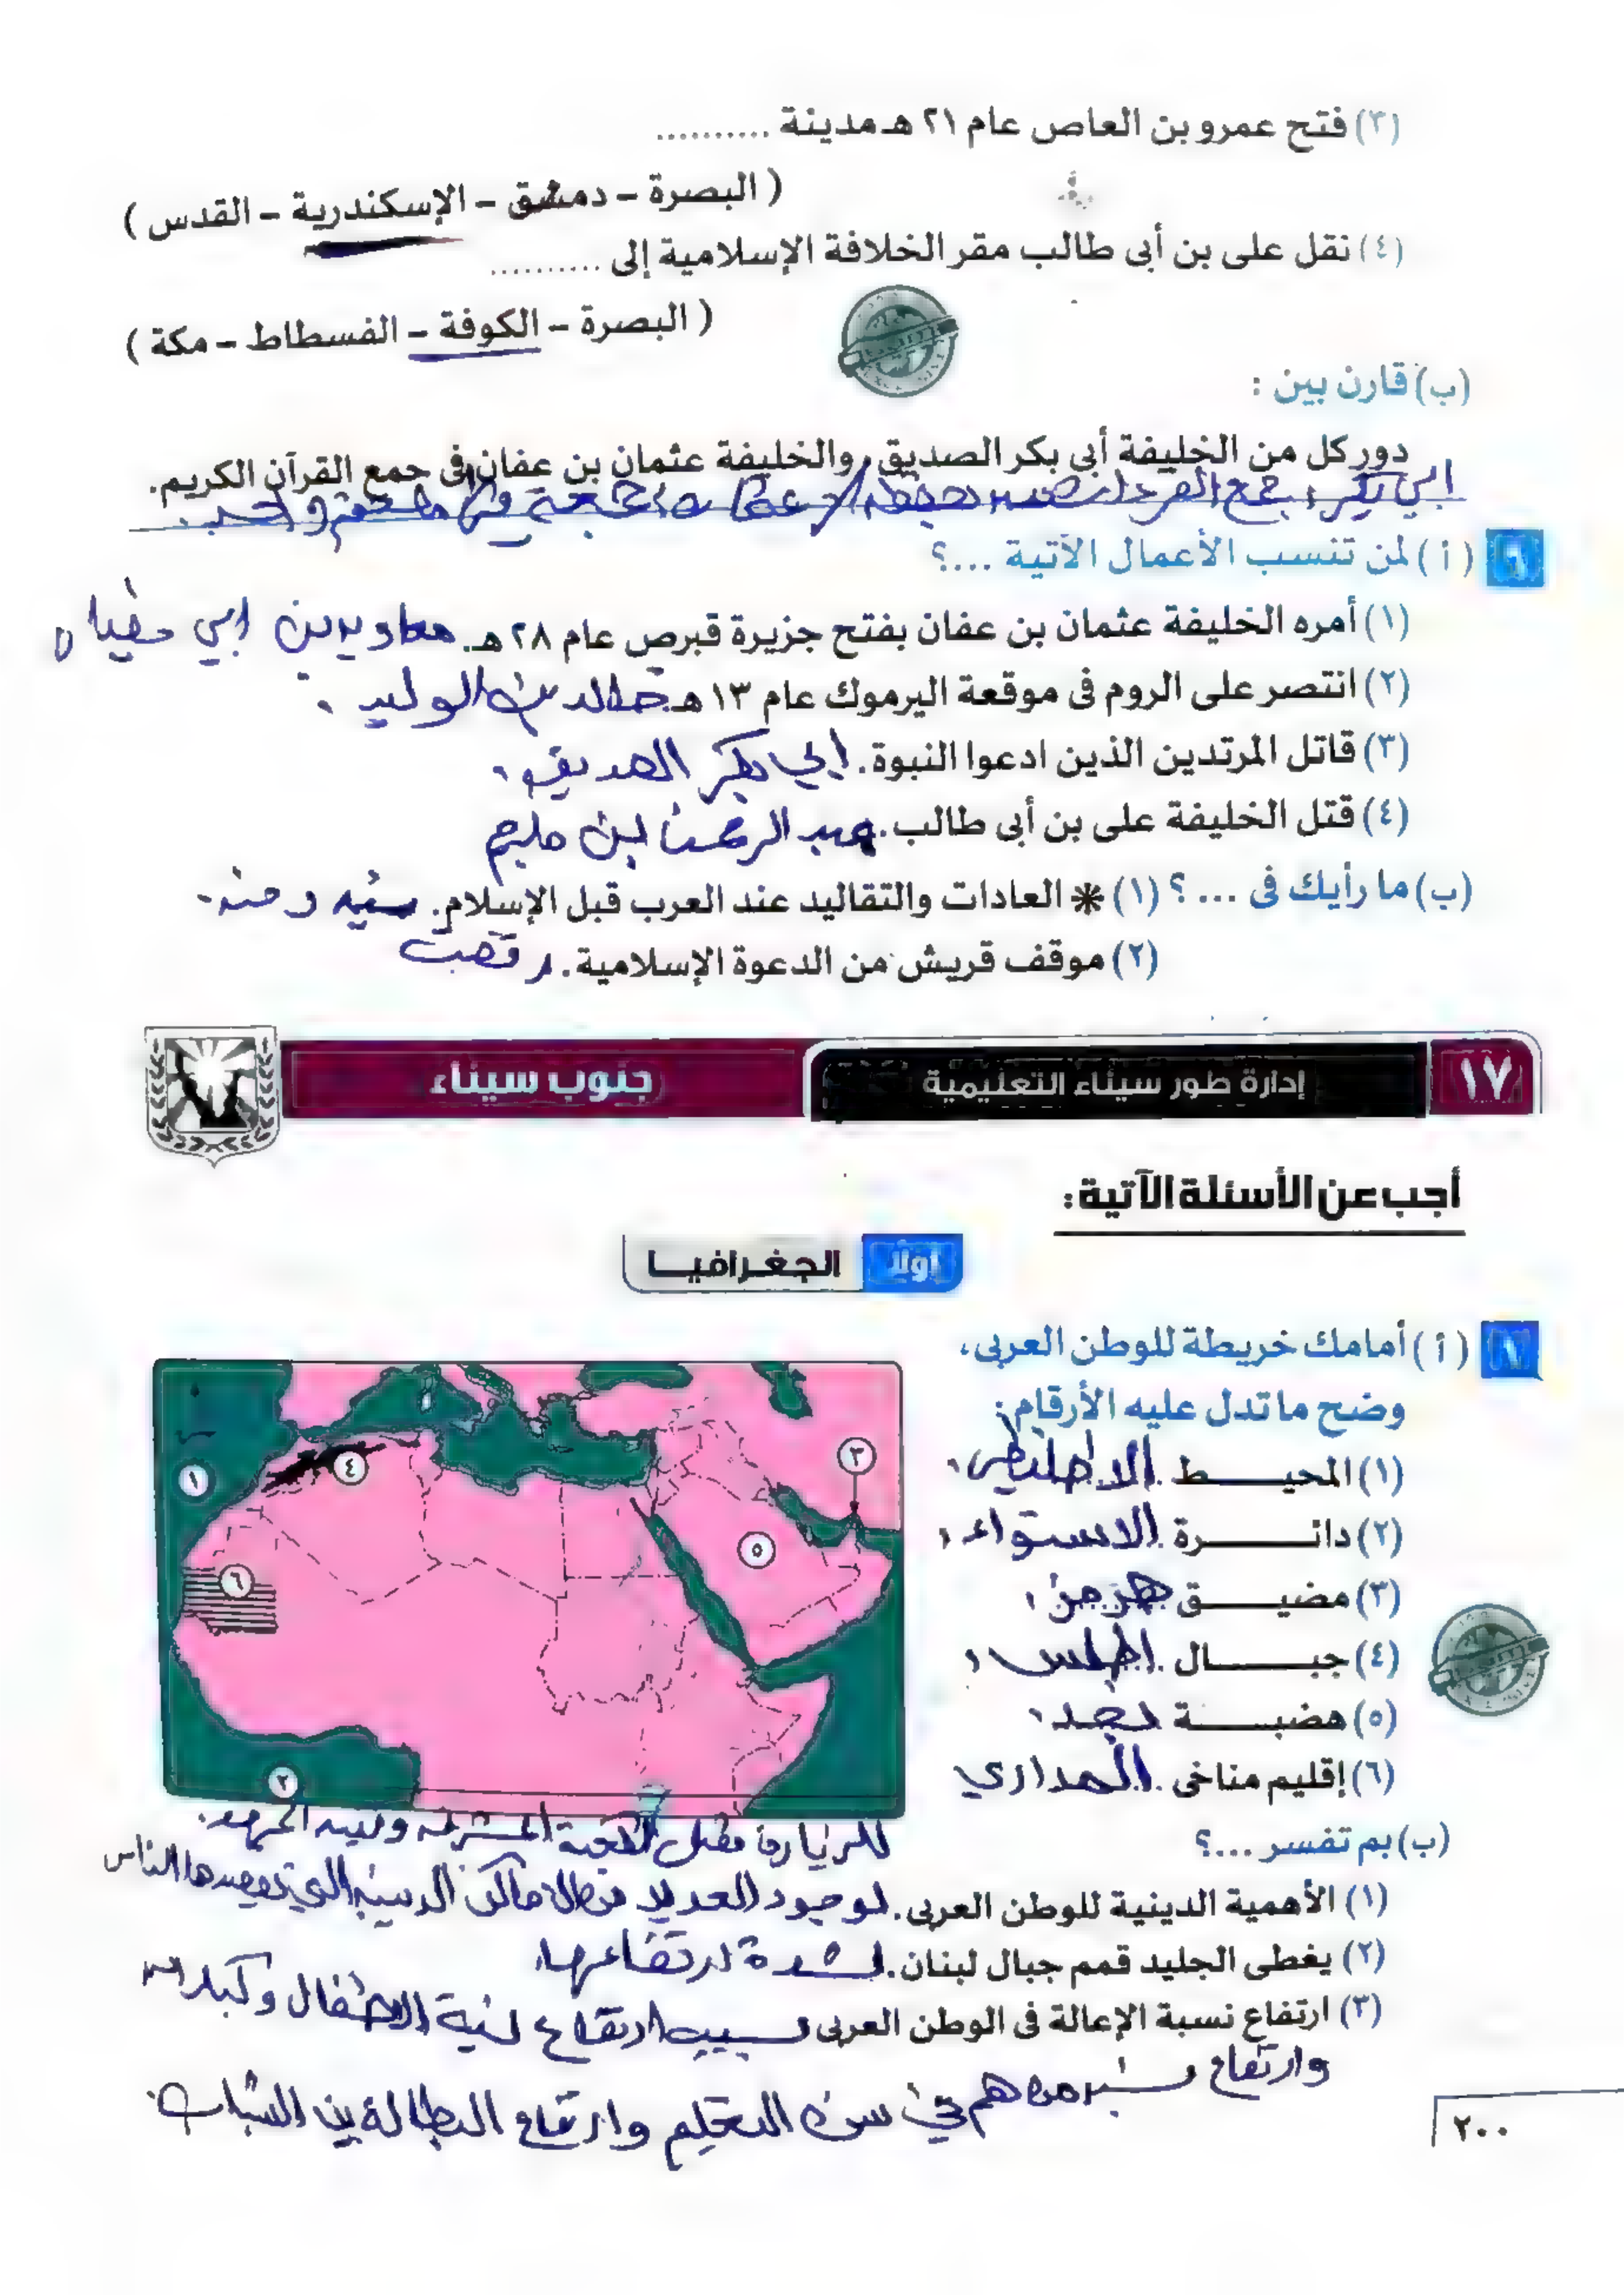 (٣) فتح عمرو بن العاص عام ٢١ هـ مدينة ..........
( البصرة – دمشق – الإسكندرية – القدس )
(٤) نقل على بن أبى طالب مقر الخلافة الإسلامية إلى ..........
( البصرة – الكوفة – الفسطاط – مكة )
(ب) قارن بين :
دور كل من الخليفة أبى بكر الصديق، والخليفة عثمان بن عفان فى جمع القرآن الكريم.
ابي بكر جمع
٦ ( أ ) لمن تنسب الأعمال الآتية ...؟
(١) أمره الخليفة عثمان بن عفان بفتح جزيرة قبرص عام ٢٨ هـ. معاويه بن ابي سفيان
(٢) انتصر على الروم فى موقعة اليرموك عام ١٣ هـ خالد بن الوليد .
(٣) قاتل المرتدين الذين ادعوا النبوة. ابي بكر الصديق
(٤) قتل الخليفة على بن أبى طالب. عبد الرحمن ابن ملجم
(ب) ما رأيك فى ... ؟ (١) * العادات والتقاليد عند العرب قبل الإسلام. سئيه و
(٢) موقف قريش من الدعوة الإسلامية. رفضت
١٧ إدارة طور سيناء التعليمية جنوب سيناء
أجب عن الأسئلة الآتية :
أولًا الجغرافيا
٧ ( أ ) أمامك خريطة للوطن العربى،
وضح ما تدل عليه الأرقام :
(١) المحيط الاطلنطي
(٢) دائرة الاستواء
(٣) مضيق هرمز
(٤) جبال اطلس
(٥) هضبة نجد
(٦) إقليم مناخى المداري
١
٢
٣
٤
٥
٦
(ب) بم تفسر ...؟
للزيارة مثل الكعبة المشرفه وبيت
(١) الأهمية الدينية للوطن العربى. لوجود العديد من الاماكن الدينيه التي يقصدها الناس
(٢) يغطى الجليد قمم جبال لبنان. لشدة ارتفاعها
(٣) ارتفاع نسبة الإعالة فى الوطن العربى بسبب ارتفاع نسبة الاطفال وكبار السن
وارتفاع نسبه من هم في سن التعليم وارتفاع البطالة بين الشباب
٢٠٠